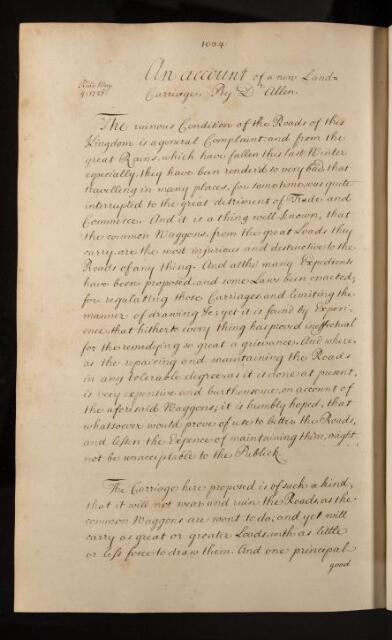 1034
An account of a new Land=
Read May
Carriage. By Dr Allen.
The ruinous Condition of the Roads of this
Kingdom is a general Complaint: and from the
great Rains, which have fallen this last Winter
especially, they have been render'd so very bad, that
travelling in many places, for some time, was quite
interrupted to the great detriment of Trade and
Commerce. And it is a thing well known, that
the common Waggons, from the great Loads they
carry, are the most injurious and destructive to the
Roads of any thing. And altho' many Expedients
have been proposed, and some Laws been enacted,
for regulating those Carriages, and limiting the
manner of drawing &c; yet it is found by Experi=
ence, that hitherto every thing has proved ineffectual
for the remedying so great a grievance. And where=
as the repairing and maintaining the Roads
in any tolerable degree, as it is done at present,
is very expensive and burthensome, on account of
the aforesaid Waggons; it is humbly hoped, that
whatsoever would prove of use to better the Roads,
and lessen the Expence of maintaining them, might
not be unacceptable to the Publick.
The Carriage here proposed is of such a kind,
that it will not wear and ruin the Roads, as the
common Waggons are wont to do; and yet will
carry as great or greater Loads, with as little
or less force to draw them. And one principal
good